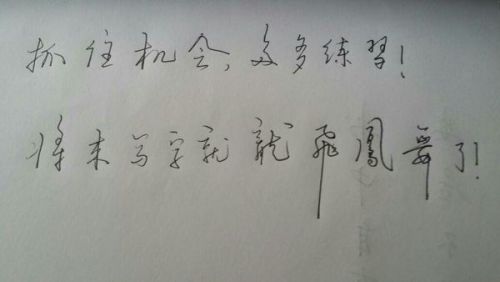 抓住机会,多多练习!
将来写字就龙飞鳳舞了!